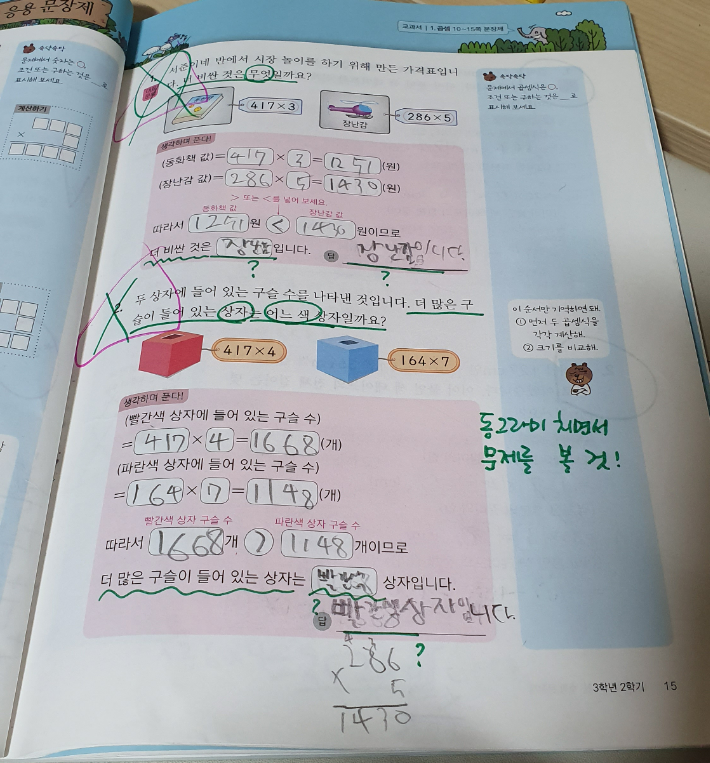 응용 문장제
교과서 | 1. 곱셈 10~15쪽 문장제
문제에서 숫자는 ○,
조건 또는 구하는 것은 __로
표시해 보세요.
계산하기
×
1. 서준이네 반에서 시장 놀이를 하기 위해 만든 가격표입니
다. 더 비싼 것은 무엇일까요?
417×3
장난감
286×5
생각하며 푼다!
(동화책 값)=417×3=1251(원)
(장난감 값)=286×5=1430(원)
> 또는 <를 넣어 보세요.
동화책 값 장난감 값
따라서 1251원 < 1430원이므로
더 비싼 것은 장난감입니다.
답 장난감입니다.
? ?
2. 두 상자에 들어 있는 구슬 수를 나타낸 것입니다. 더 많은 구
슬이 들어 있는 상자는 어느 색 상자일까요?
417×4
164×7
생각하며 푼다!
(빨간색 상자에 들어 있는 구슬 수)
=417×4=1668(개)
(파란색 상자에 들어 있는 구슬 수)
=164×7=1148(개)
빨간색 상자 구슬 수 파란색 상자 구슬 수
따라서 1668개 > 1148개이므로
더 많은 구슬이 들어 있는 상자는 빨간색 상자입니다.
?
답 빨간색상자입니다.
286 ?
× 5
1430
문제에서 곱셈식은 ○,
조건 또는 구하는 것은 __로
표시해 보세요.
이 순서만 기억하면 돼.
① 먼저 두 곱셈식을
각각 계산해.
② 크기를 비교해.
동그라미 치면서
문제를 볼 것!
3학년 2학기 15